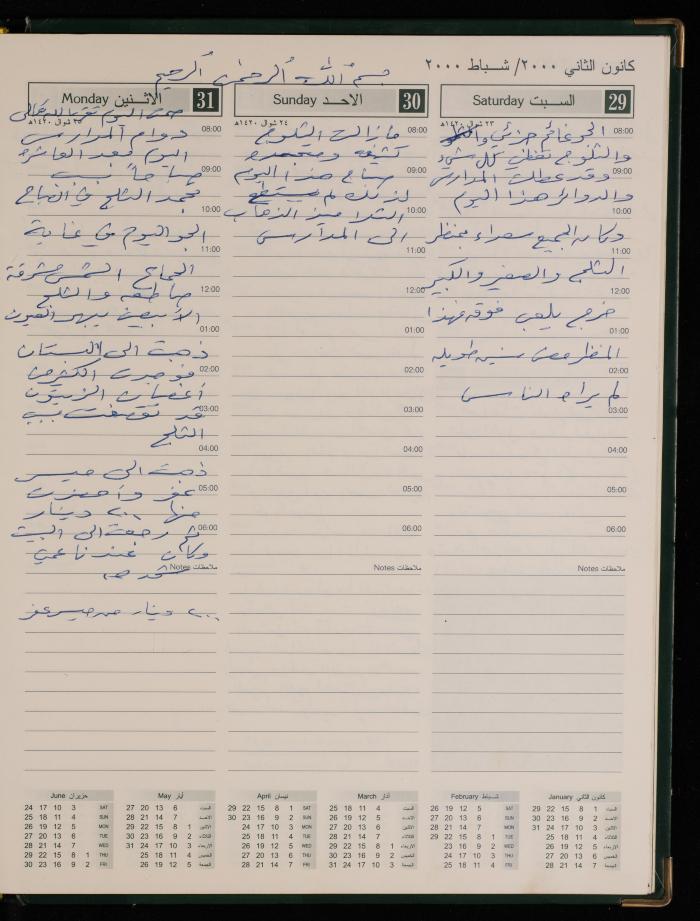 كانون الثاني ٢٠٠٠/ شباط ٢٠٠٠
بسم الله الرحمن الرحيم
29 السبت Saturday
٢٣ شوال ١٤٢٠هـ
الجو غائم جزئي
والثلوج تغطي كل شيء
وقد عطلت المدارس
والدوائر هذا اليوم
وكان الجميع سعداء بمنظر
الثلج والصغير والكبير
خرج يلعب فوقه فهذا
المنظر من سنين طويله
لم يراه الناس
30 الاحد Sunday
٢٤ شوال ١٤٢٠هـ
مازالت الثلوج
كثيفه ومتجمده
صباح هذا اليوم
لذلك لم يستطع
التلاميذ الذهاب
الى المدارس
31 الاثنين Monday
٢٥ شوال ١٤٢٠هـ
دوام المدارس
اليوم بعد العاشره
صباحاً بسبب
تجمد الثلج في الصباح
الجو اليوم في غاية
الجمال الشمس مشرقة
ساطعه والثلج
الأبيض يبهر العيون
ذهبت الى البستان
فوجدت الكثير من
أغصان الزيتون
قد تقصفت بسبب
الثلج
ذهبت الى
وأحضرت
منها ٢٠٠ دينار
ثم رجعت الى البيت
وكان عندنا
٢٠٠ دينار من
08:00
09:00
10:00
11:00
12:00
01:00
02:00
03:00
04:00
05:00
06:00
ملاحظات Notes
ملاحظات Notes
ملاحظات Notes
كانون الثاني January
السبت 1 8 15 22 29
الاحد 2 9 16 23 30
الاثنين 3 10 17 24 31
الثلاثاء 4 11 18 25
الاربعاء 5 12 19 26
الخميس 6 13 20 27
الجمعة 7 14 21 28
شباط February
SAT 5 12 19 26
SUN 6 13 20 27
MON 7 14 21 28
TUE 1 8 15 22 29
WED 2 9 16 23
THU 3 10 17 24
FRI 4 11 18 25
آذار March
السبت 4 11 18 25
الاحد 5 12 19 26
الاثنين 6 13 20 27
الثلاثاء 7 14 21 28
الاربعاء 1 8 15 22 29
الخميس 2 9 16 23 30
الجمعة 3 10 17 24 31
نيسان April
SAT 1 8 15 22 29
SUN 2 9 16 23 30
MON 3 10 17 24
TUE 4 11 18 25
WED 5 12 19 26
THU 6 13 20 27
FRI 7 14 21 28
أيار May
السبت 6 13 20 27
الاحد 7 14 21 28
الاثنين 1 8 15 22 29
الثلاثاء 2 9 16 23 30
الاربعاء 3 10 17 24 31
الخميس 4 11 18 25
الجمعة 5 12 19 26
حزيران June
SAT 3 10 17 24
SUN 4 11 18 25
MON 5 12 19 26
TUE 6 13 20 27
WED 7 14 21 28
THU 1 8 15 22 29
FRI 2 9 16 23 30